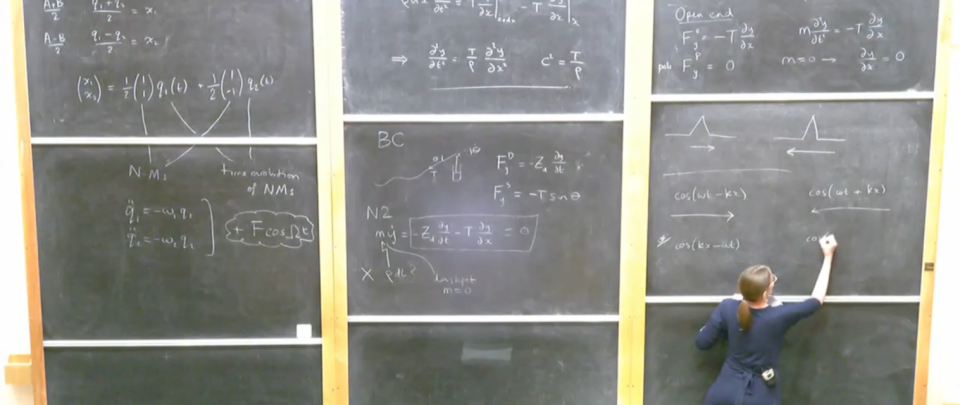 A+B/2 q₁+q₂/2 = x₁
A-B/2 q₁-q₂/2 = x₂
(x₁ x₂) = 1/2 (1 1) q₁(t) + 1/2 (1 -1) q₂(t)
N.Ms time evolution
of NMs
q̈₁ = -ω₁ q₁
q̈₂ = -ω₂ q₂
+ F cos Ωt
⇒ ∂²y/∂t² = T/ρ ∂²y/∂x² c² = T/ρ
BC
F_y^D = -Z₁ ∂y/∂t
F_y^S = -T sin θ
N2
mÿ = -Z₁ ∂y/∂t - T ∂y/∂x = 0
X ρdx?
dashpot
m=0
Open end
F_y = -T ∂y/∂x m ∂²y/∂t² = -T ∂y/∂x
F_y = 0 m=0 → ∂y/∂x = 0
cos(ωt - kx) cos(ωt + kx)
* cos(kx - ωt) co